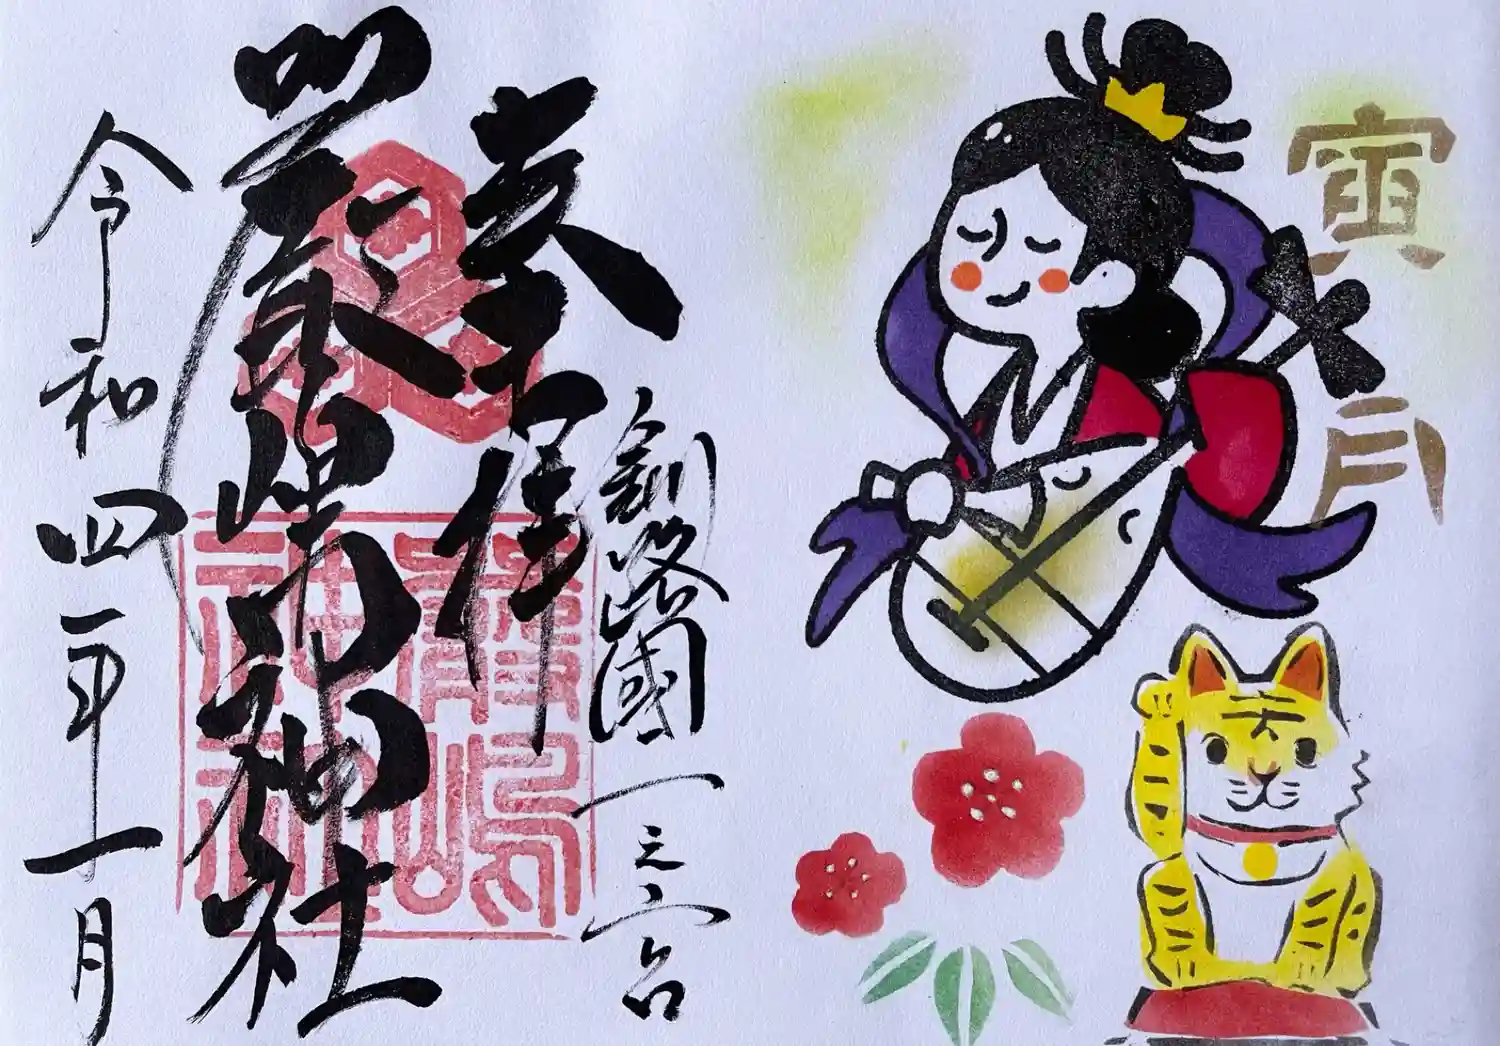 寅月
釧路國一之宮
奉拝
嚴嶋神社
嚴嶋
神社
令和四年一月